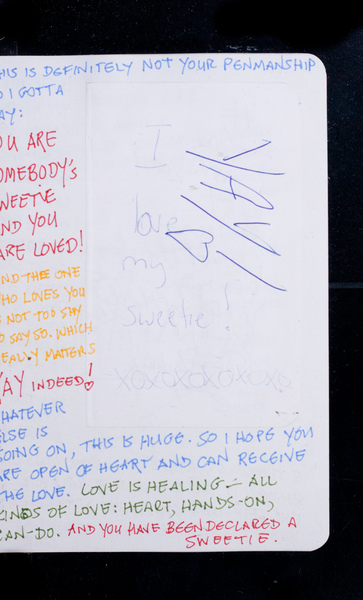 HIS IS DEFINITELY NOT YOUR PENMANSHIP
O I GOTTA
AY:
OU ARE
OMEBODY'S
WEETIE
ND YOU
ARE LOVED!
ND THEE ONE
HO LOVES YOU
S NOT TOO SHY
O SAY SO. WHICH
EALLY MATTERS
YAY INDEED!
I
love
my
sweetie!
xoxoxoxoxo
HATEVER
ELSE IS
GOING ON, THIS IS HUGE. SO I HOPE YOU
ARE OPEN OF HEART AND CAN RECEIVE
THE LOVE. LOVE IS HEALING — ALL
KINDS OF LOVE: HEART, HANDS-ON,
CAN-DO. AND YOU HAVE BEEN DECLARED A
SWEETIE.